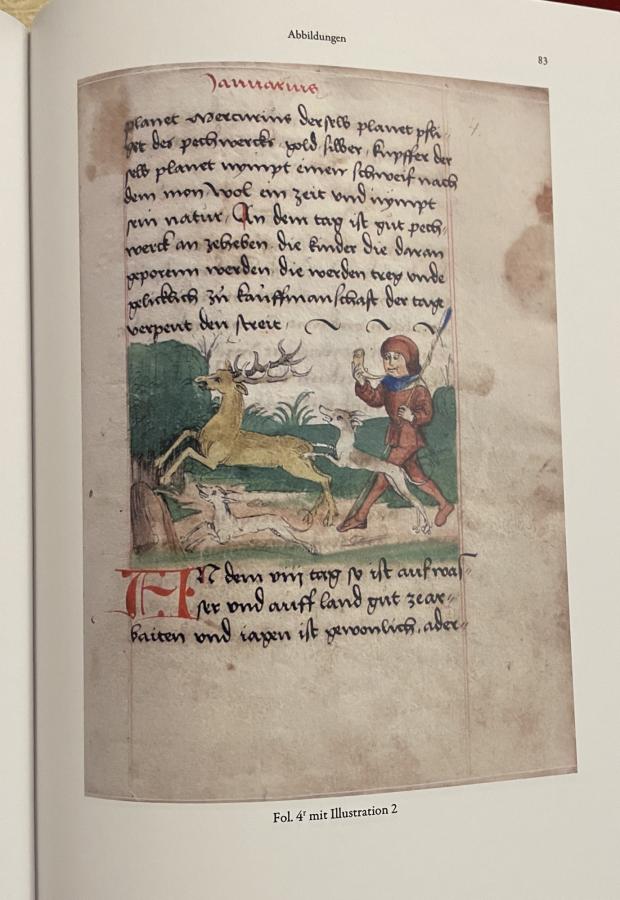 Abbildungen
83
Januarius
4.
planet Mercurius derselb planet pfli-
get des pechwercks gold silber, kupffer der
selb planet nympt einen schweif nach
dem mon wol ein zeit vnd nympt
sein natur. An dem tag ist gut pech-
werck an zeheben die kinder die daran
geporenn werden die werden treg vnde
gelicklich zu kauffmanschafft der tage
verpeut den streit
AN dem viij tag so ist auf was-
ser vnd auff land gut zear-
baiten vnd iagen ist gewonlich, ader-
Fol. 4r mit Illustration 2